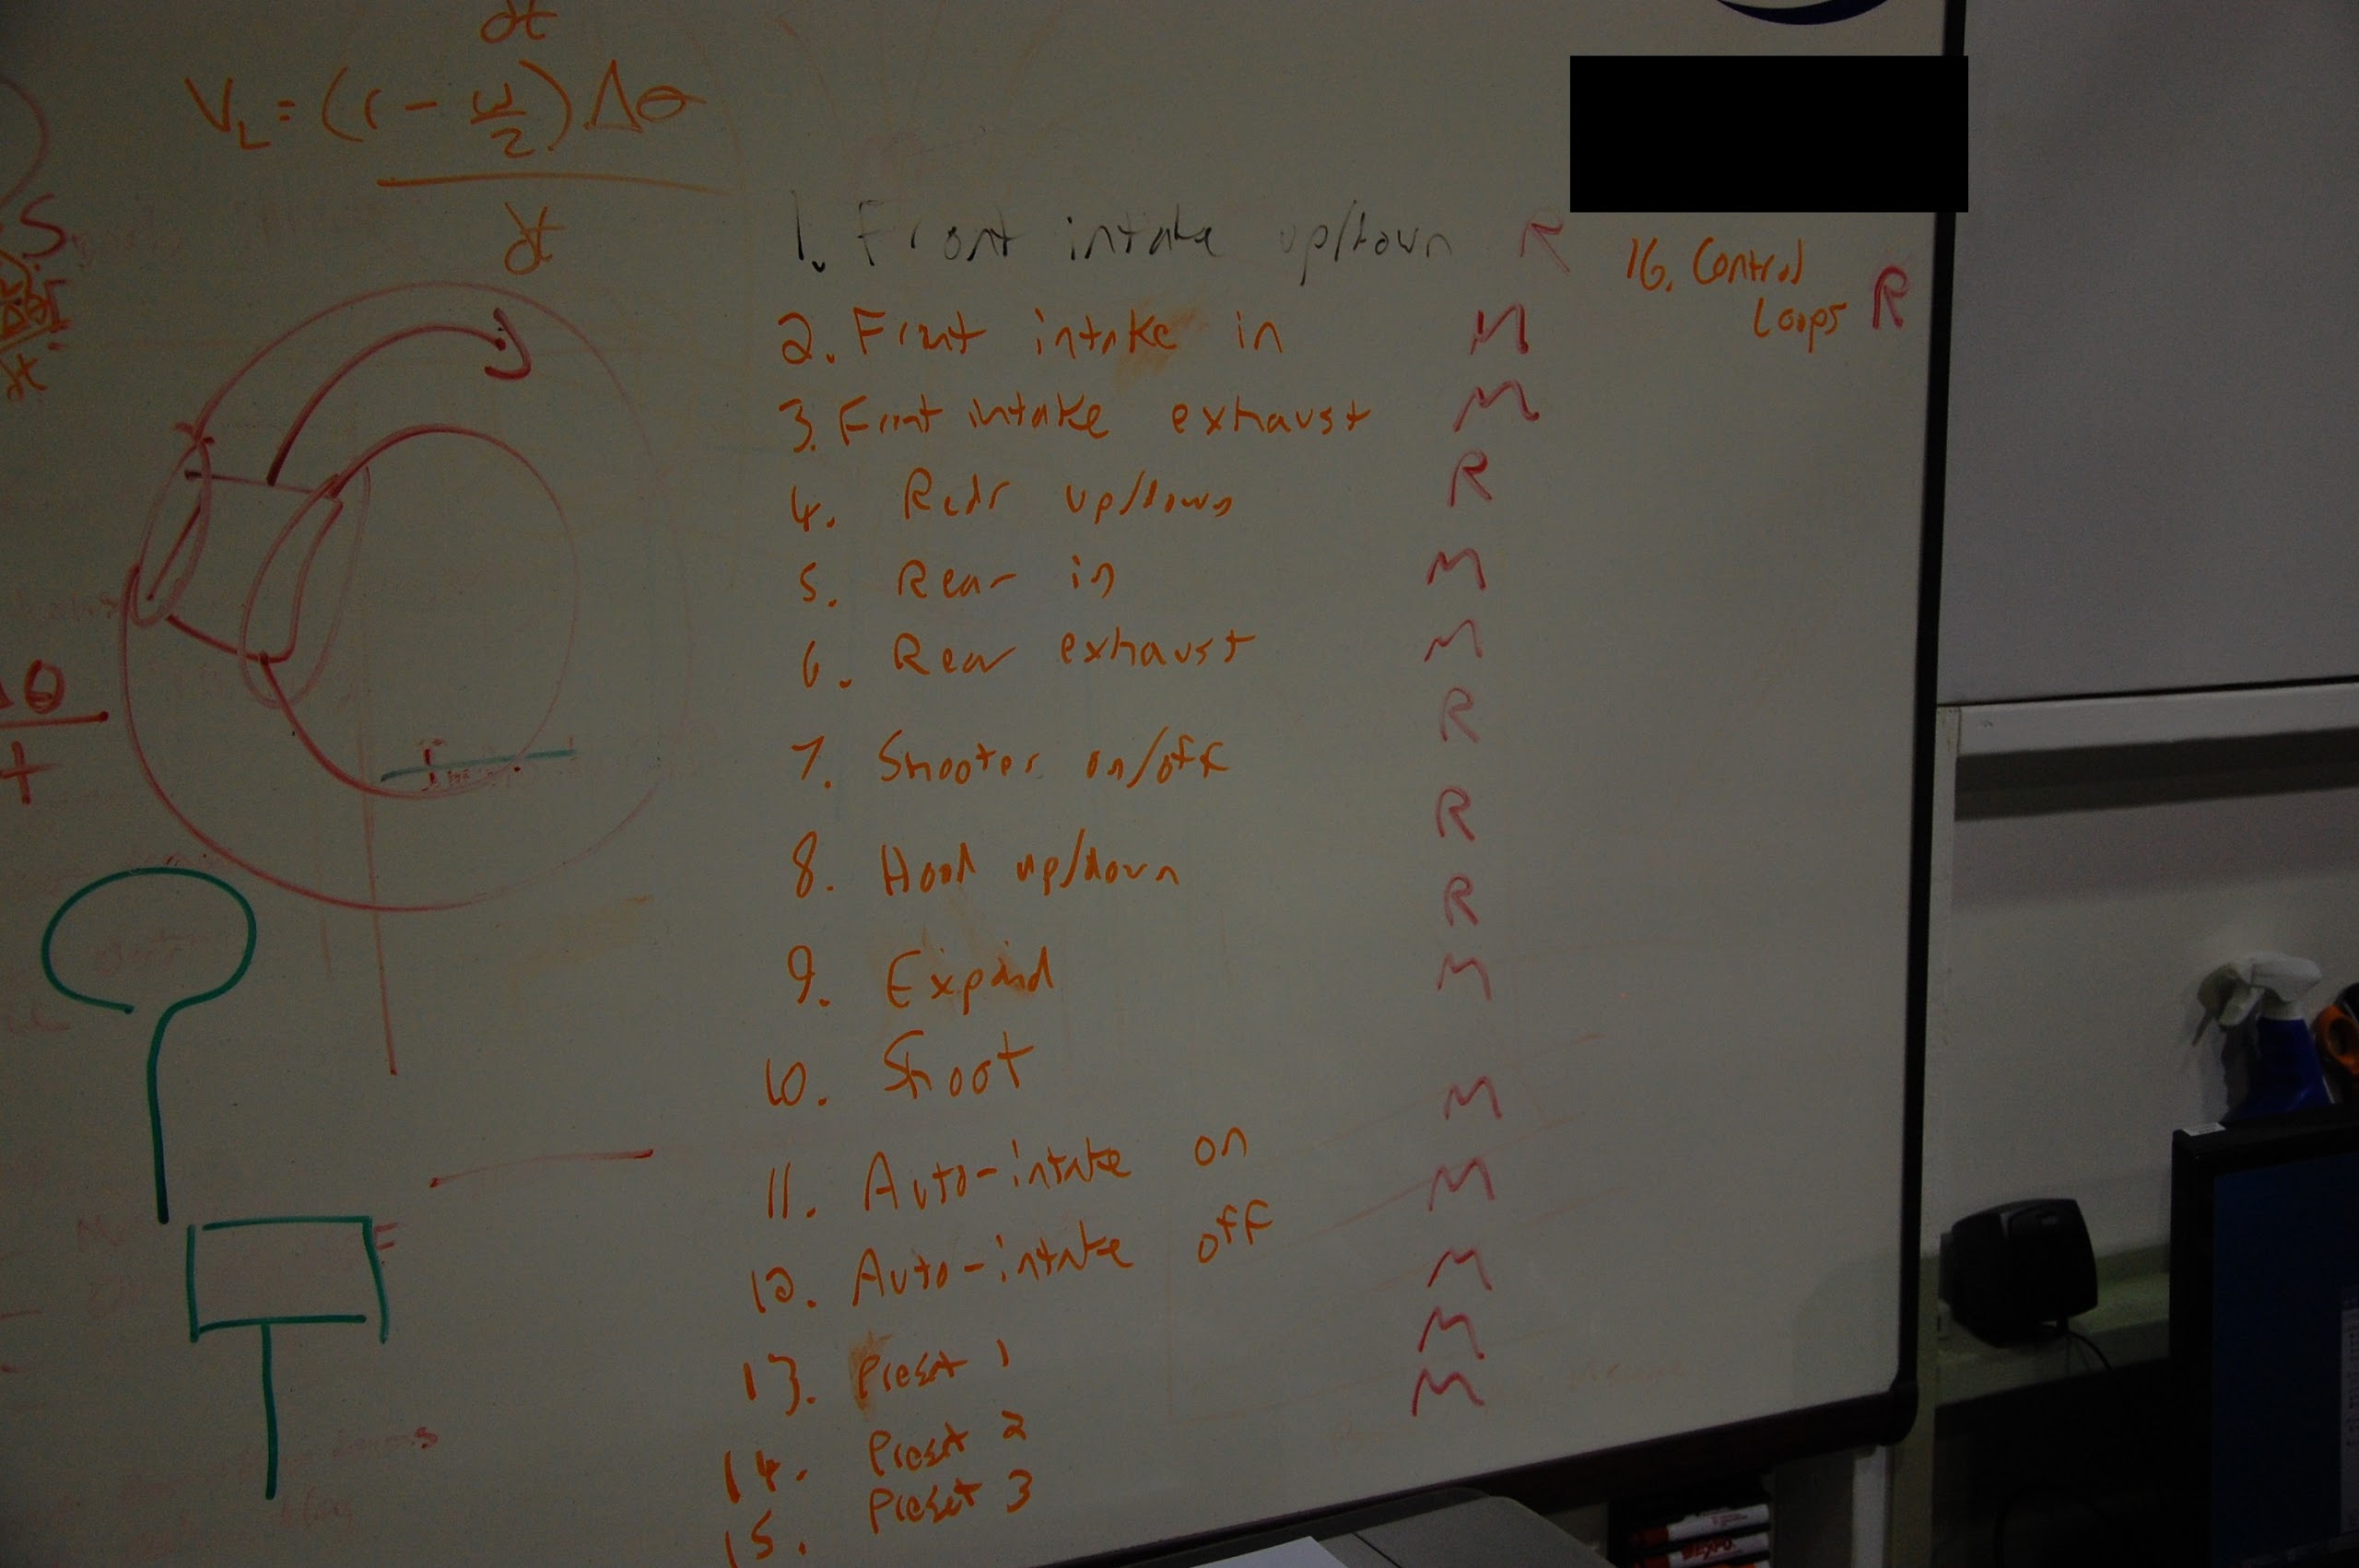 dt
V_L = (r - w/2) Δθ
dt
1. Front intake up/down R
2. Front intake in M
3. Front intake exhaust M
4. Rear up/down R
5. Rear in M
6. Rear exhaust M
7. Shooter on/off R
8. Hood up/down R
9. Expand R
10. Shoot M
11. Auto-intake on M
12. Auto-intake off M
13. Preset 1 M
14. Preset 2 M
15. Preset 3 M
16. Control
Loops R
S
Δθ
t
F